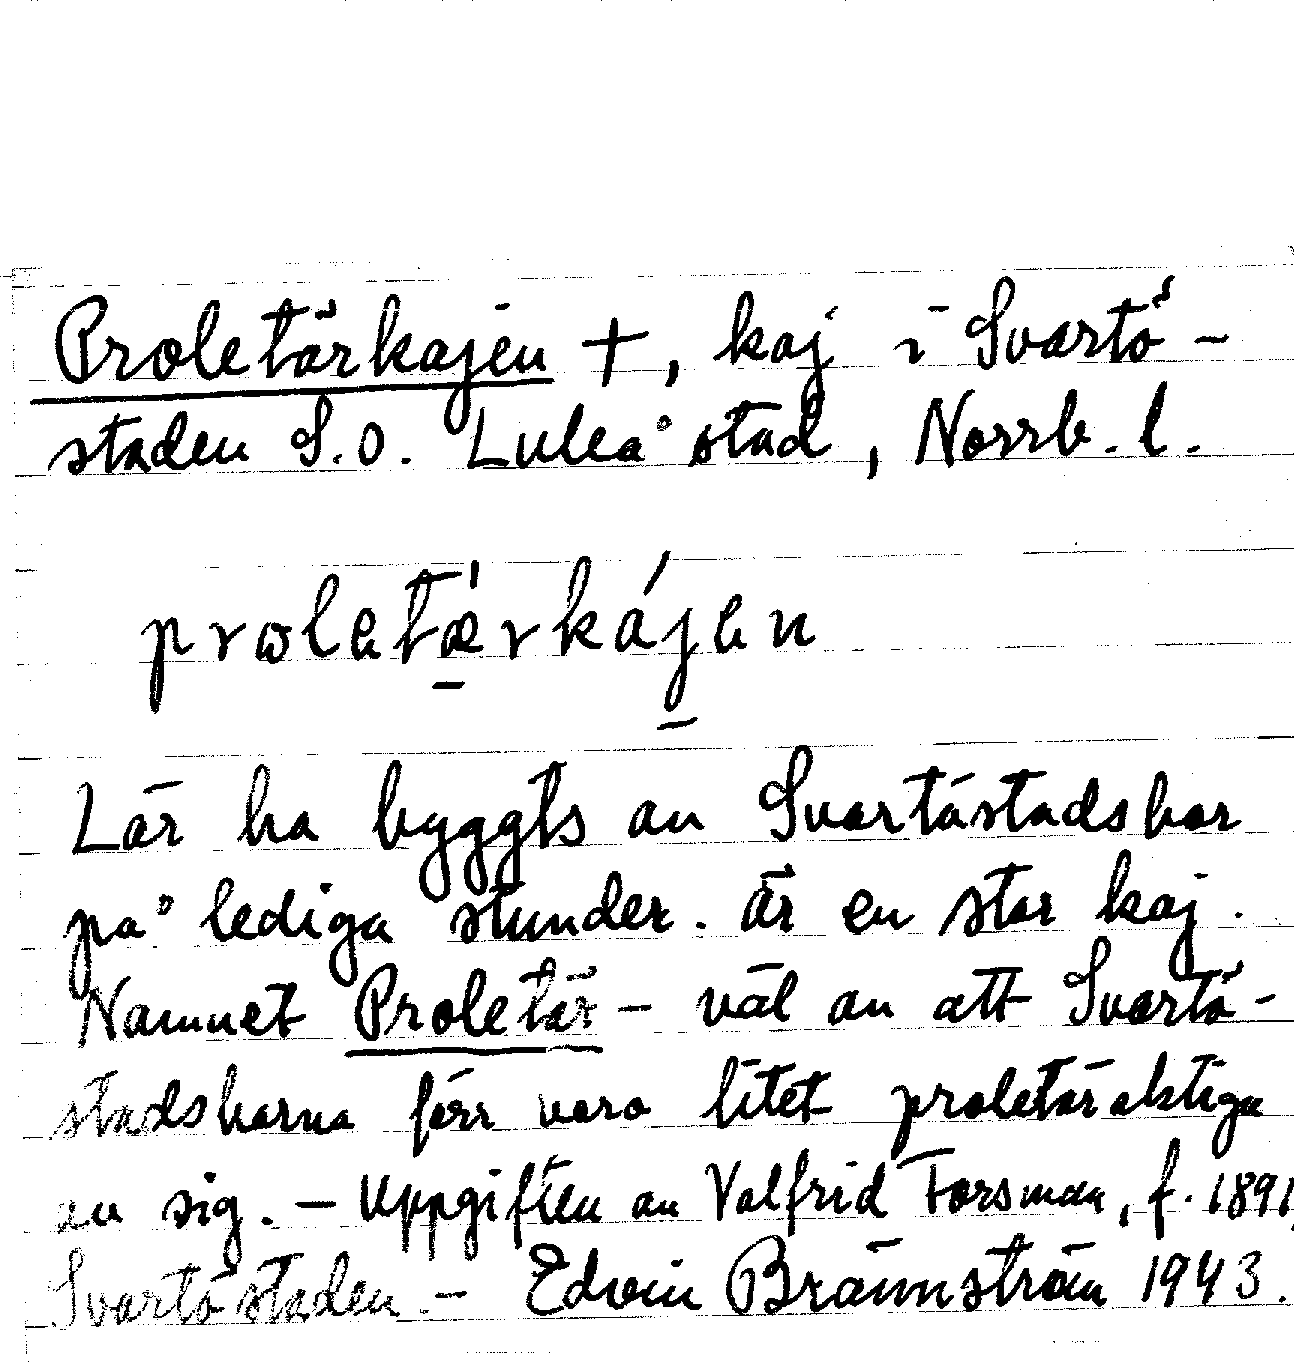 Proletärkajen +, kaj i Svartö-
staden S.O. Luleå stad, Norrb. l.
prωletǽrkájen
Lär ha byggts av Svartöstadsbor
på lediga stunder. Är en stor kaj.
Namnet Proletär – väl av att Svartö-
stadsborna förr voro litet proletäraktiga
av sig. – Uppgiften av Valfrid Forsman, f. 1891,
Svartöstaden. – Edvin Brännström 1943.